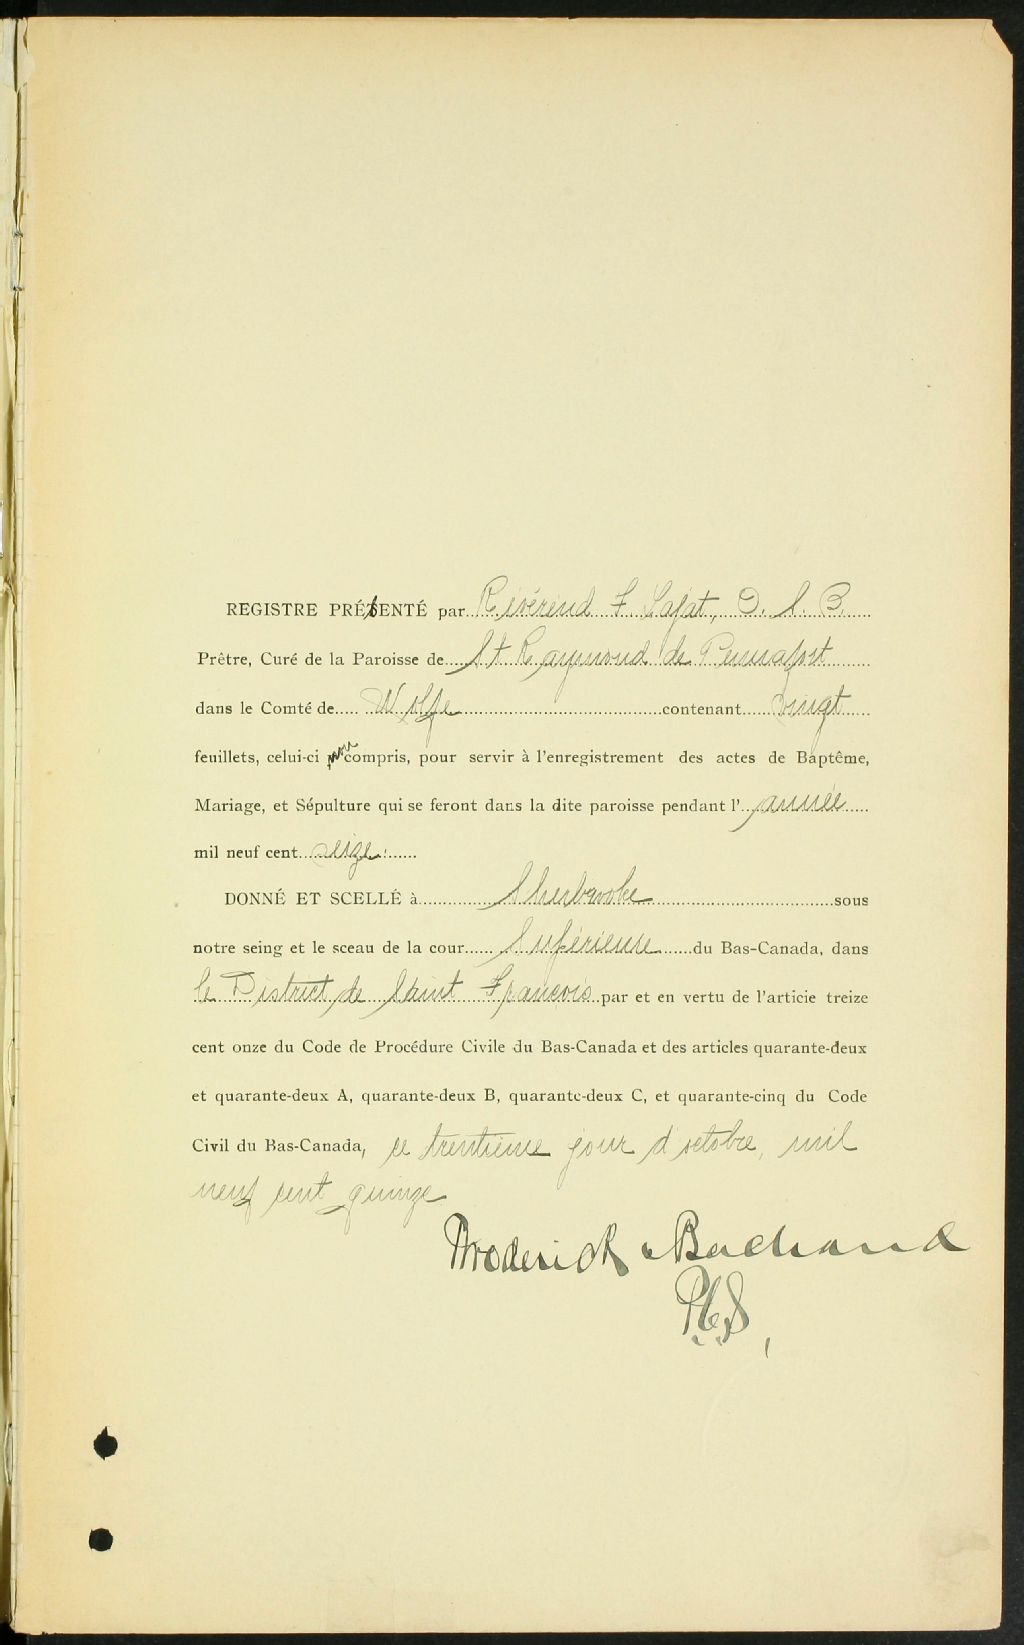 REGISTRE PRÉSENTÉ par Révérend F. Lafat, O. S. B.
Prêtre, Curé de la Paroisse de St Raymond de Pennafort
dans le Comté de Wolfe contenant vingt
feuillets, celui-ci non compris, pour servir à l'enregistrement des actes de Baptême,
Mariage, et Sépulture qui se feront dans la dite paroisse pendant l'année
mil neuf cent seize
DONNÉ ET SCELLÉ à Sherbrooke sous
notre seing et le sceau de la cour Supérieure du Bas-Canada, dans
le District de Saint François par et en vertu de l'articie treize
cent onze du Code de Procédure Civile du Bas-Canada et des articles quarante-deux
et quarante-deux A, quarante-deux B, quarante-deux C, et quarante-cinq du Code
Civil du Bas-Canada, ce trentième jour d'octobre, mil
neuf cent quinze
Broderick Bachand
P.C.S.